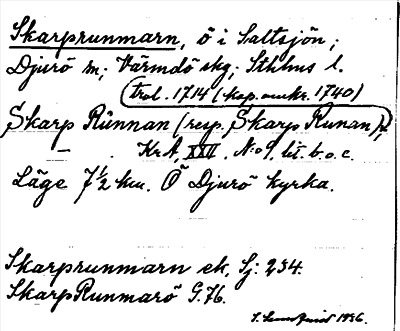 Skarprunmarn, ö i Saltsjön;
Djurö sn; Värmdö skg; Sthlms l.
trol. 1714 (kop. omkr. 1740)
Skarp Rūnnan (resp. Skarp Runan),
Kr A, XXII. N:o 9, lit. b. o. c.
Läge 7½ km. Ö Djurö kyrka.
Skarprunmarn ek, Sj: 234.
Skarp Runmarö G. 76.
1936.